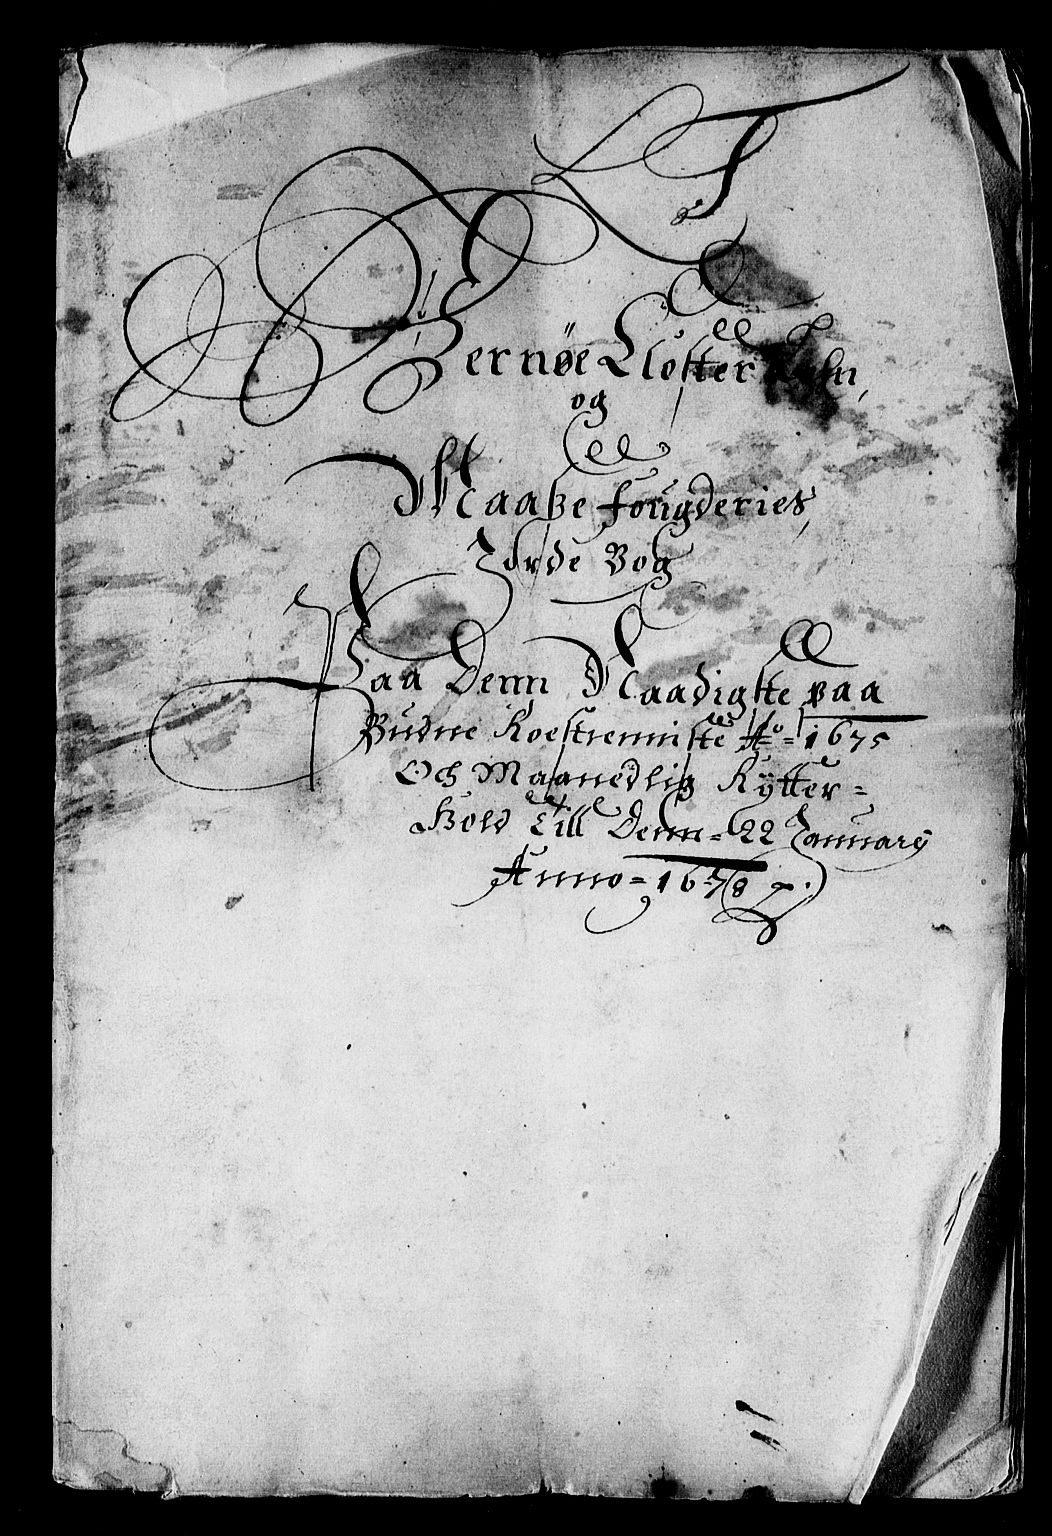 Bernøe Closter Lehn,
og
Maaße fougderies,
Jorde Bog
Paa Denn Naadigste paa
Budne Koestienniste Ao = 1675
Och Maanedlig Rÿtter =
Hold Till Denn = 22 Januarÿ
Anno = 1678